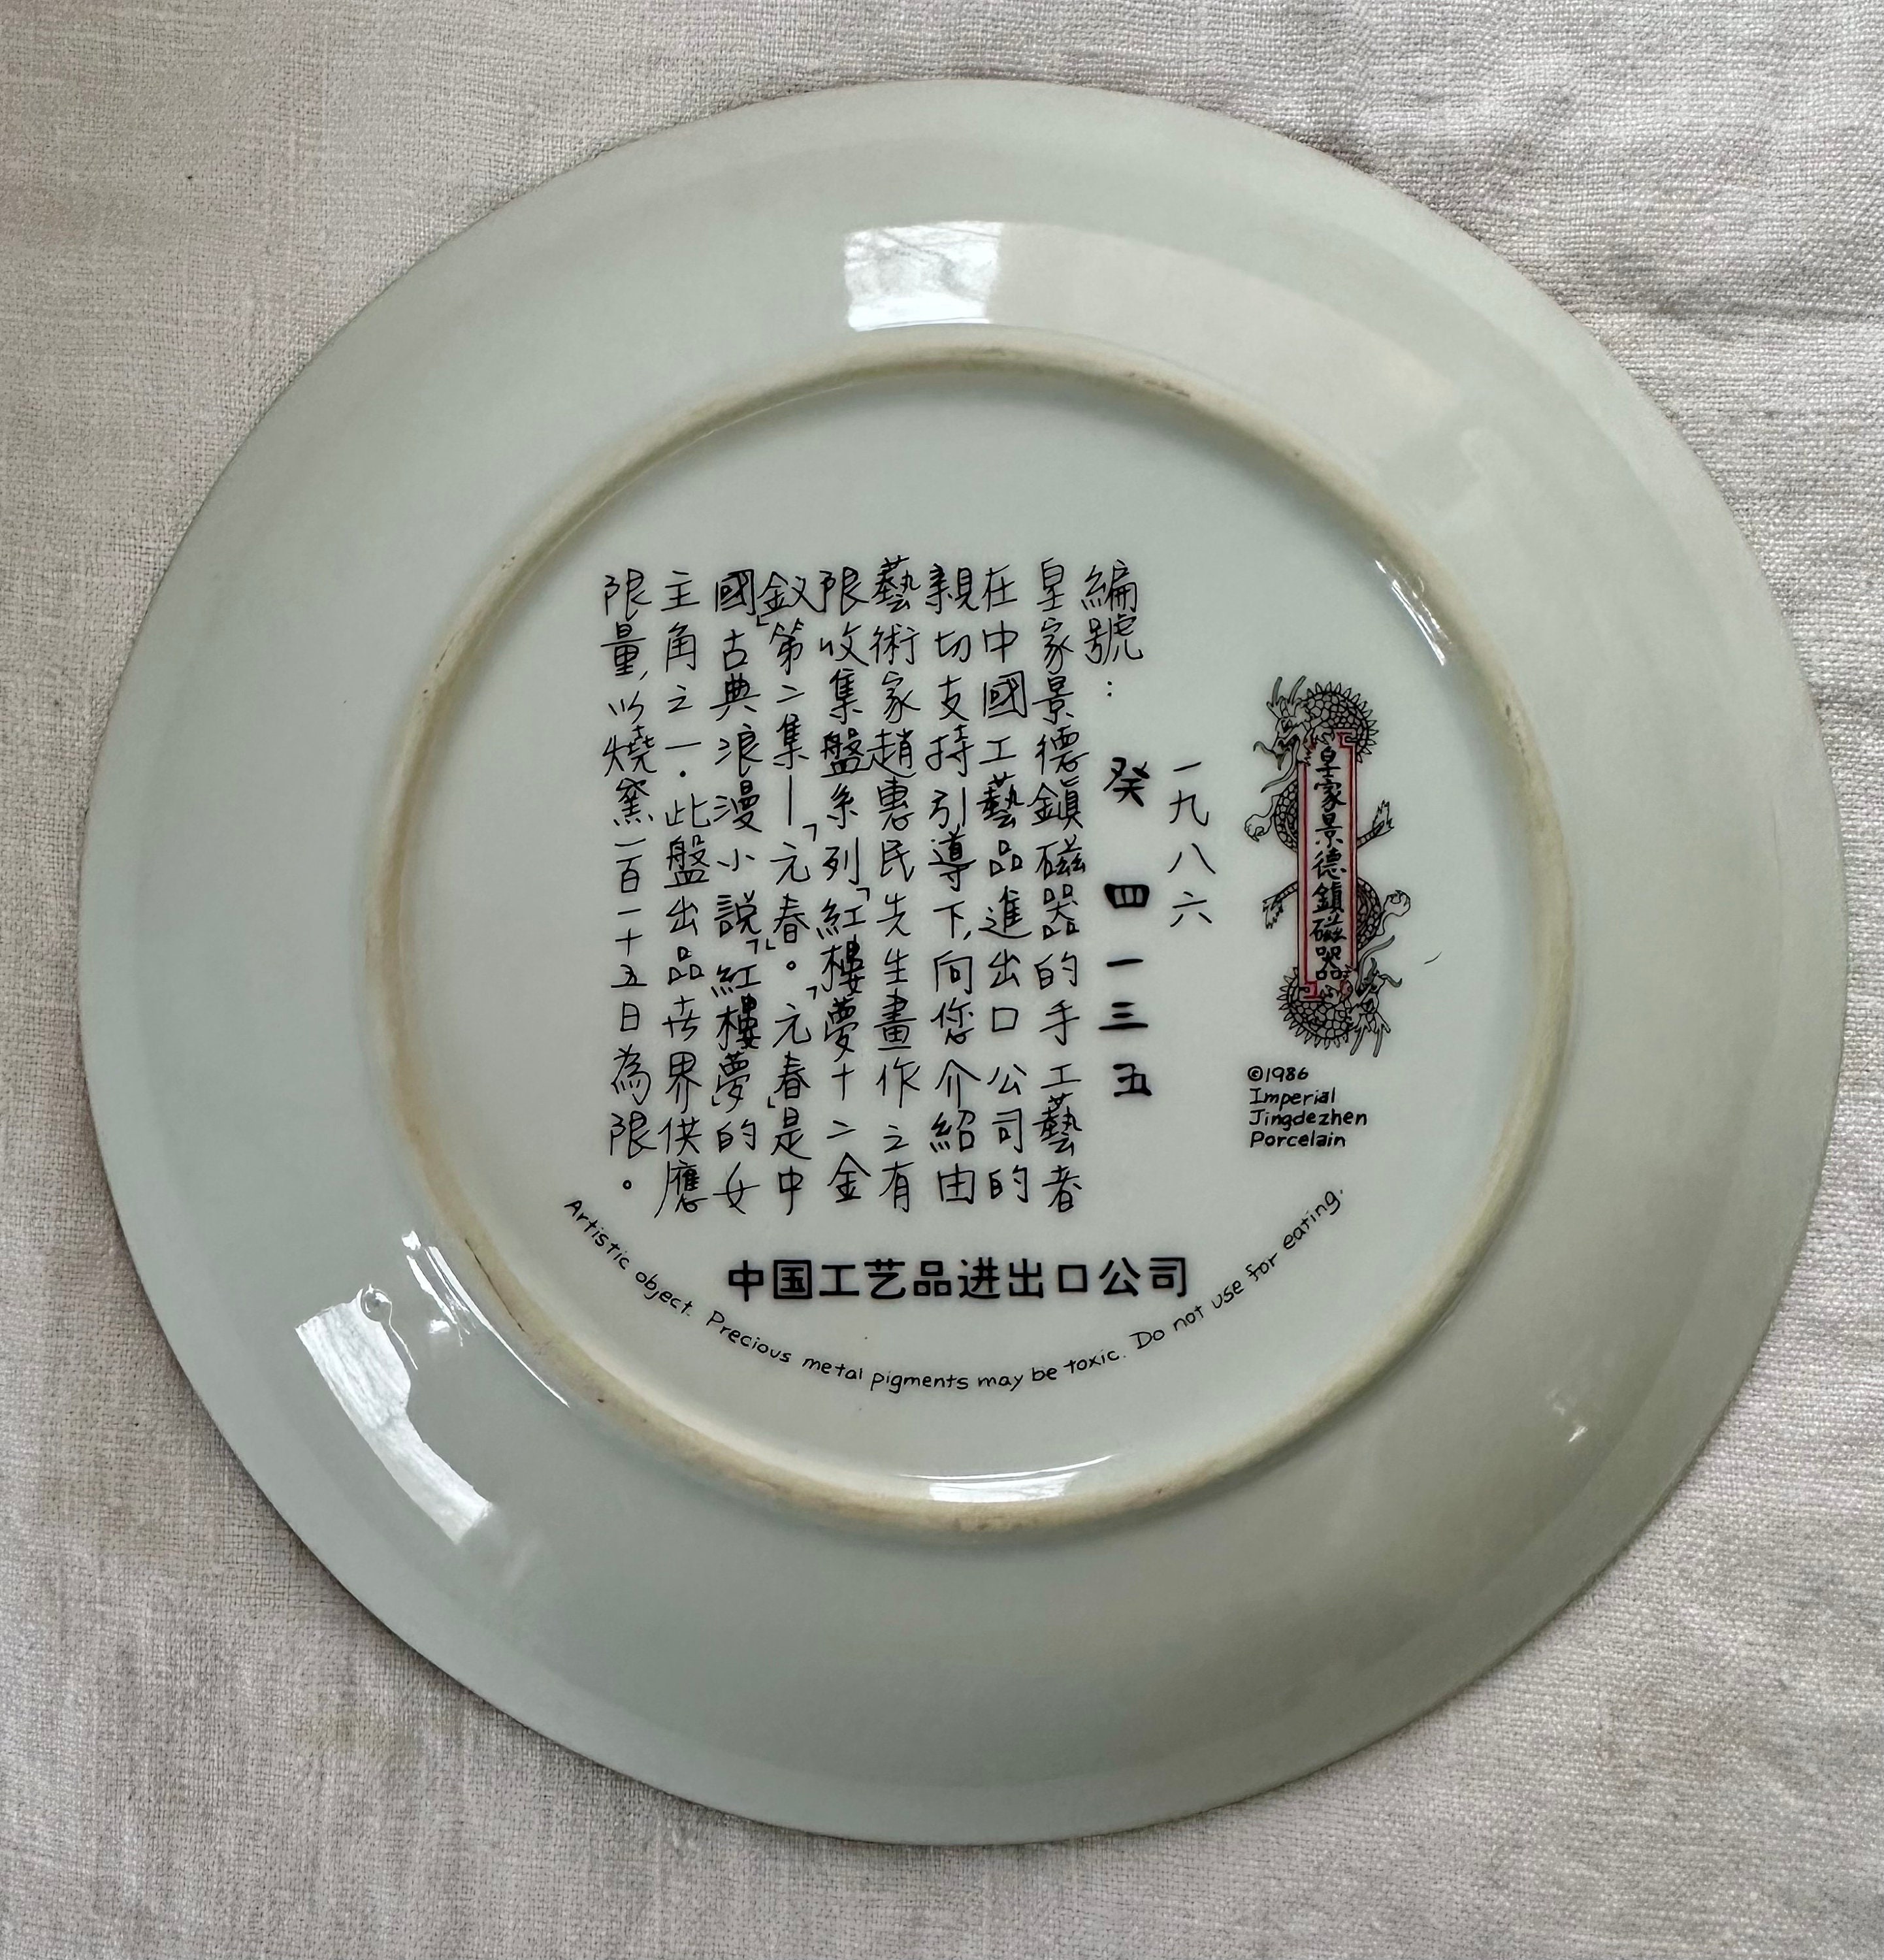 皇家景德鎮磁器
©1986
Imperial
Jingdezhen
Porcelain
一九八六
編號：癸四一三五
皇家景德鎮磁器的手工藝者
在中國工藝品進出口公司的
親切支持引導下,向您介紹由
藝術家趙惠民先生畫作之有
限收集盤系列「紅樓夢十二金
釵」第二集—「元春」。「元春」是中
國古典浪漫小說「紅樓夢」的女
主角之一.此盤出品世界供應
限量,以燒窯一百一十五日為限。
中国工艺品进出口公司
Artistic object. Precious metal pigments may be toxic. Do not use for eating.